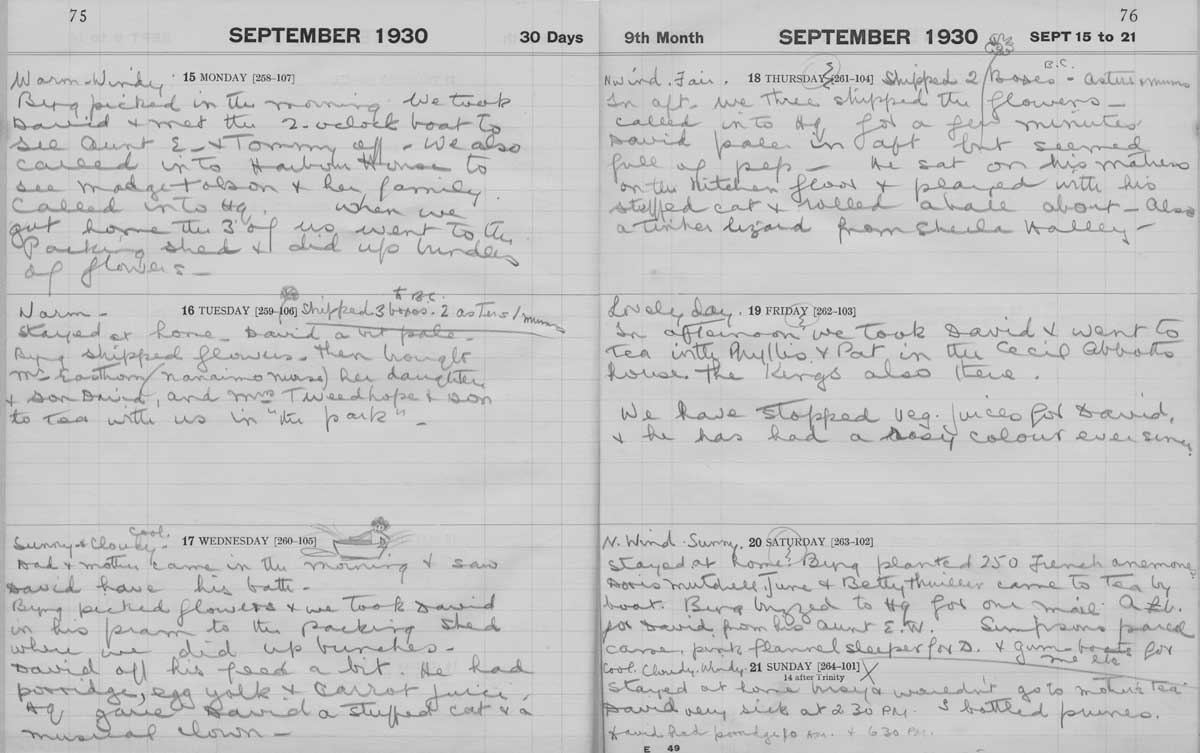 75
SEPTEMBER 1930 30 Days
Warm - Windy 15 MONDAY [258-107]
Byng picked in the morning. We took
David & met the 2-oclock boat to
see Aunt E. & Tommy off - We also
called into Harbour House to
see Madge & her family.
Called into Hq. When we
got home the 3 of us went to the
Packing shed & did up bunches
of flowers -
16 TUESDAY [259-106] Shipped 3 boxes. 2 asters 1 mums
to B.C.
Warm -
Stayed at home - David a bit pale -
Byng shipped flowers - then brought
(Nanaimo nurse) her daughter
& son David, and Mrs Tweedhope & son
to tea with us in "the park" -
cool.
Sunny & Cloudy - 17 WEDNESDAY [260-105]
Dad & mother came in the morning & saw
David have his bath -
Byng picked flowers & we took David
in his pram to the packing shed
where we did up bunches -
David off his feed a bit. He had
porridge, egg yolk & carrot juice.
Hq gave David a stuffed cat & a
musical clown -
76
9th Month SEPTEMBER 1930 SEPT 15 to 21
B.C.
N wind. Fair. 18 THURSDAY [261-104] Shipped 2 Boxes - asters & mums
In aft. we three shipped the flowers -
called into Hq for a few minutes
David pale in aft but seemed
full of pep - He sat on his mattress
on the kitchen floor & played with his
stuffed cat & rolled a ball about - Also
a lizard from Sheila Halley -
Lovely day. 19 FRIDAY [262-103]
In afternoon we took David & went to
tea with Phyllis & Pat in the Cecil Abbotts
house. The Kings also there.
We have stopped veg. juices for David,
& he has had a rosy colour ever since.
N. Wind. Sunny. 20 SATURDAY [263-102]
Stayed at home. Byng planted 250 French anemone
Doris Mitchell, June & Betty came to tea by
boat. Byng buzzed to Hq for our mail.
for David from his Aunt E.W. Simpsons parcel
came, pink flannel sleeper for D. & gum boots for
me etc
Cool. Cloudy. Windy 21 SUNDAY [264-101]
14 after Trinity
Stayed at home wouldn't go to mothers tea
David very sick at 2 30 PM. I bottled prunes.
David had porridge 10 AM. & 6 30 PM.
E 49